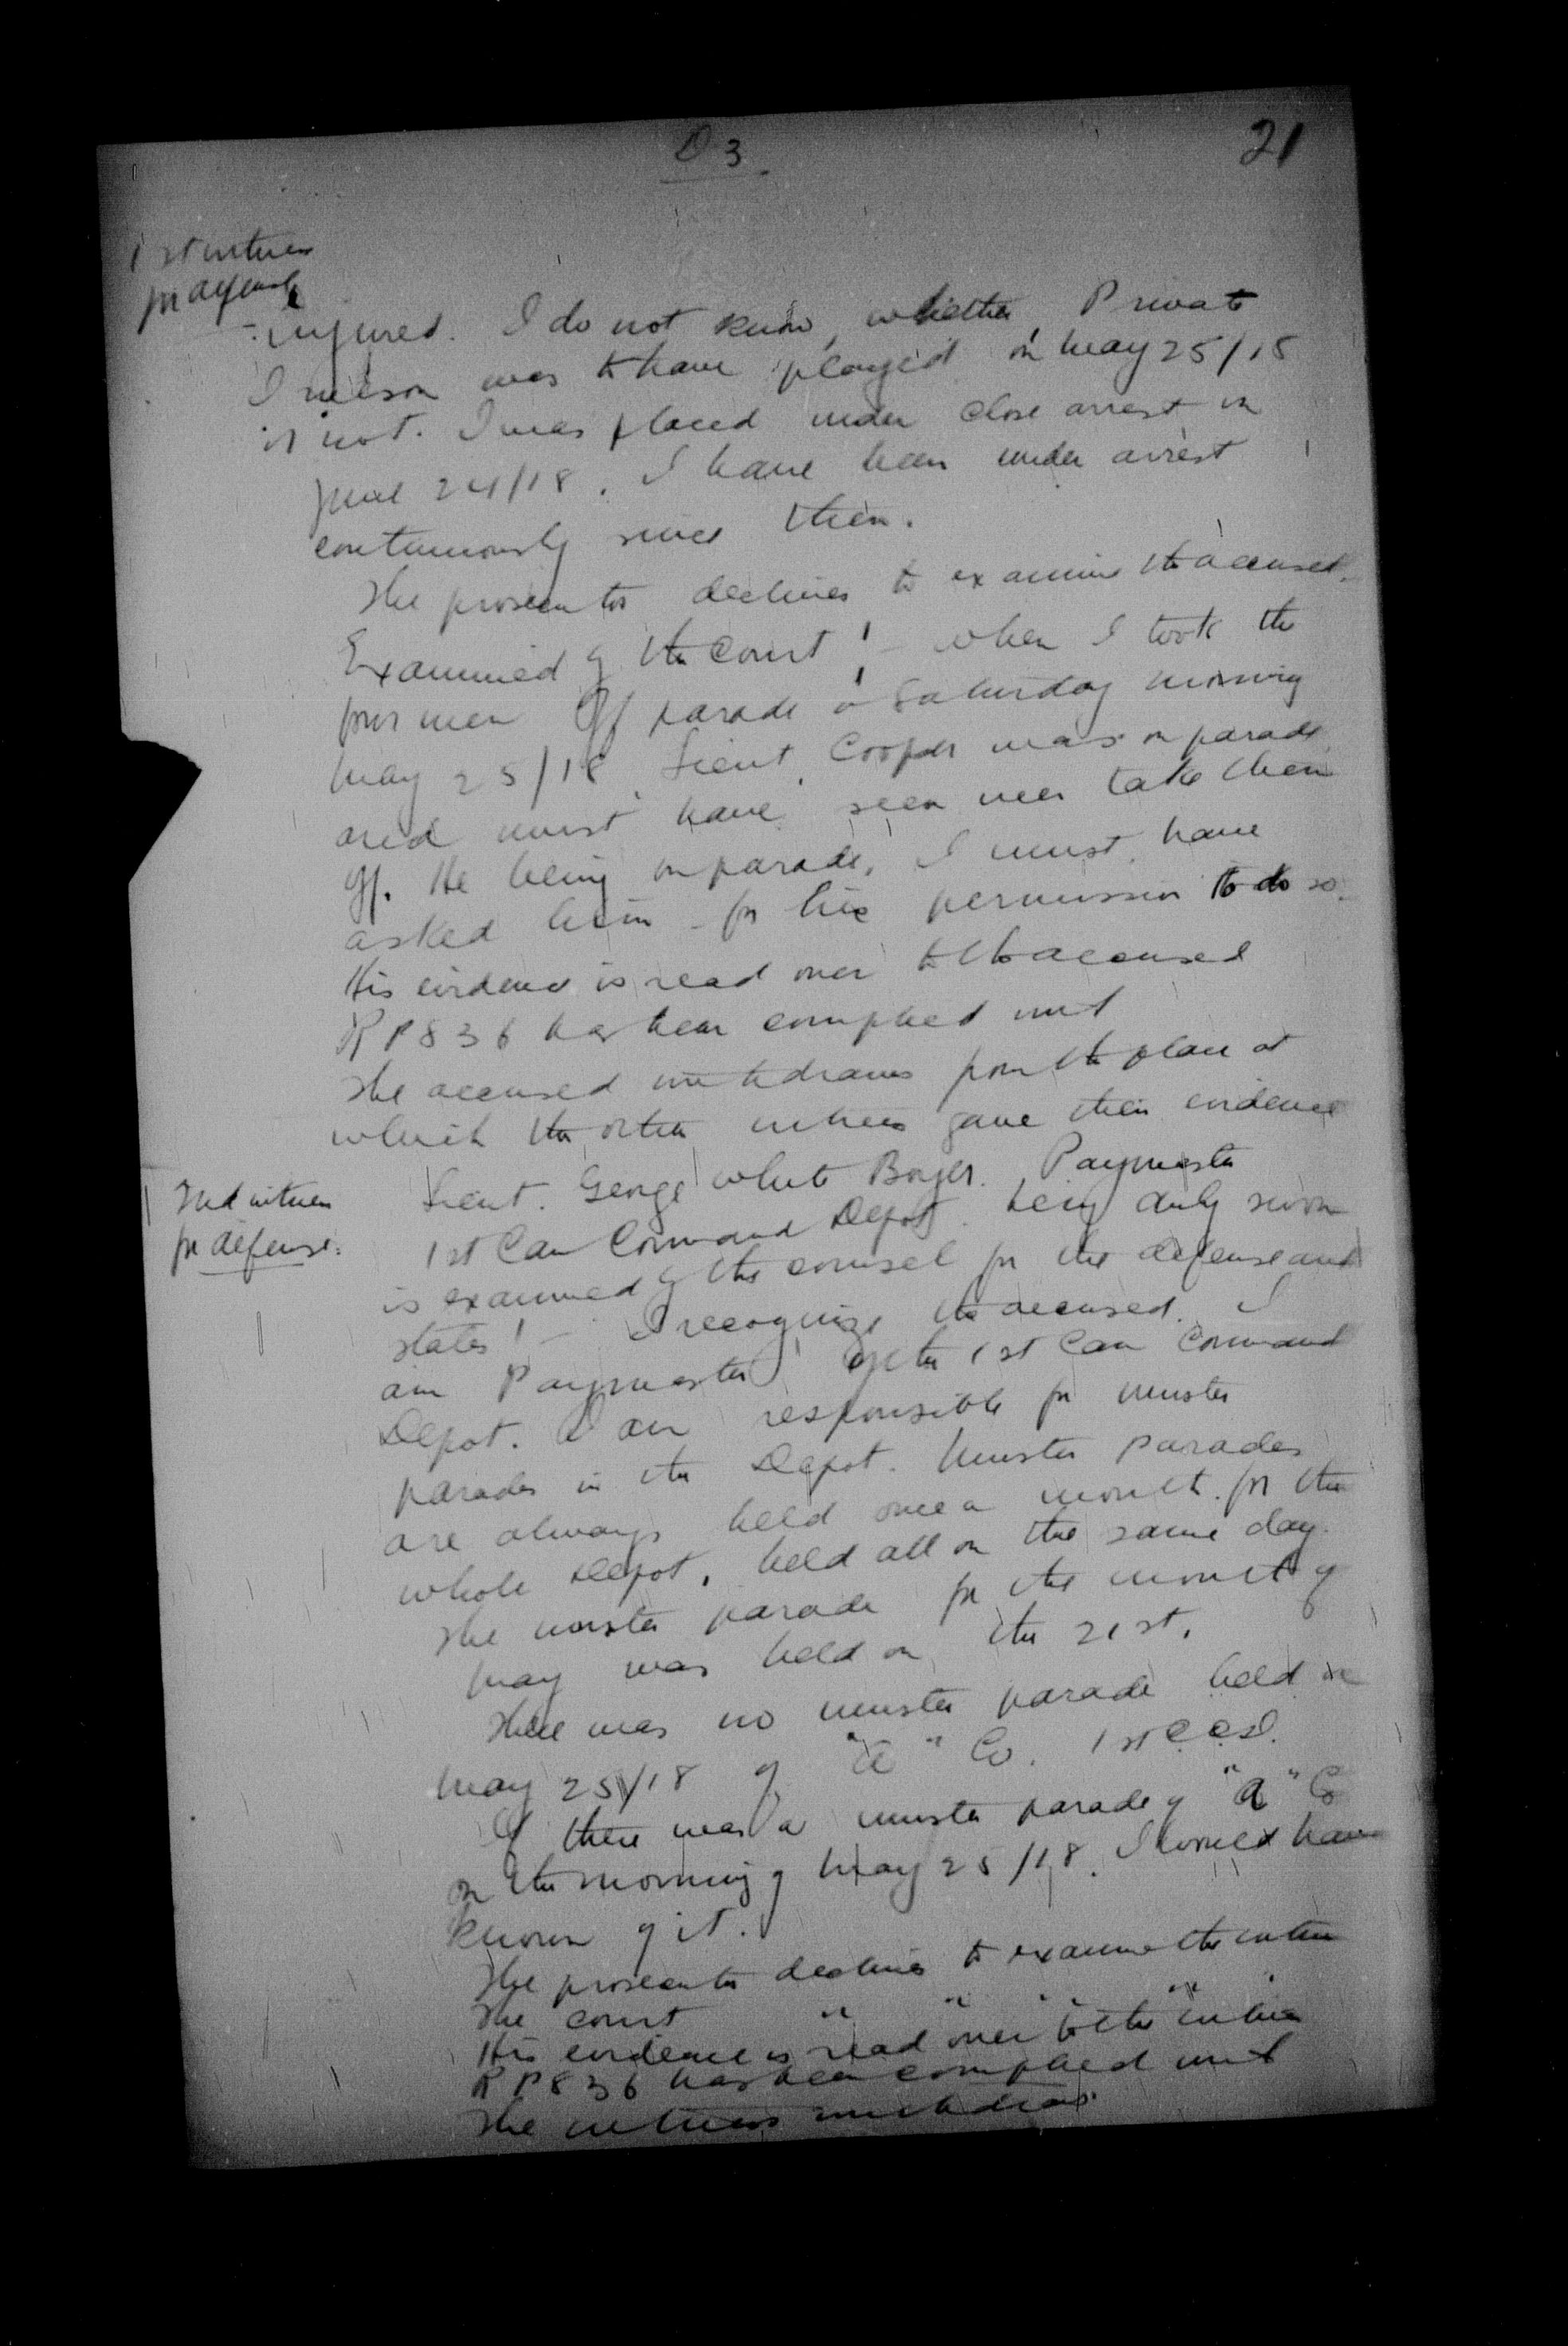 D 3
21
1st witness
for defense
injured. I do not know, whether Private
was to have played on May 25/18
or not. I was placed under close arrest on
June 24/18. I have been under arrest
continuously since then.
The prosecutor declines to examine the accused.
Examined by the Court :- when I took the
four men off parade on Saturday morning
May 25/18, Lieut. Cooper was on parade
and must have seen me take them
off. He being on parade, I must have
asked him for his permission to do so.
His evidence is read over to the accused
RP 83 b has been complied with
The accused withdraws from the place at
which the other witness gave their evidence
2nd witness
for defense.
Lieut. George White Paymaster
1st Can Command Depot. being duly sworn
is examined by the counsel for the defense and
states :- I recognize the accused. I
am Paymaster of the 1st Can Command
Depot. I am responsible for muster
parades in the Depot. Muster parades
are always held once a month for the
whole Depot, held all on the same day.
The muster parade for the month of
May was held on the 21st.
There was no muster parade held on
May 25/18 of "A" Co. 1st C.C.D.
If there was a muster parade of "A" Co
on the morning of May 25/18. I would have
known of it.
The prosecutor declines to examine the witness
The court " " " " "
His evidence is read over to the witness
RP 83 b has been complied with
The witness withdraws